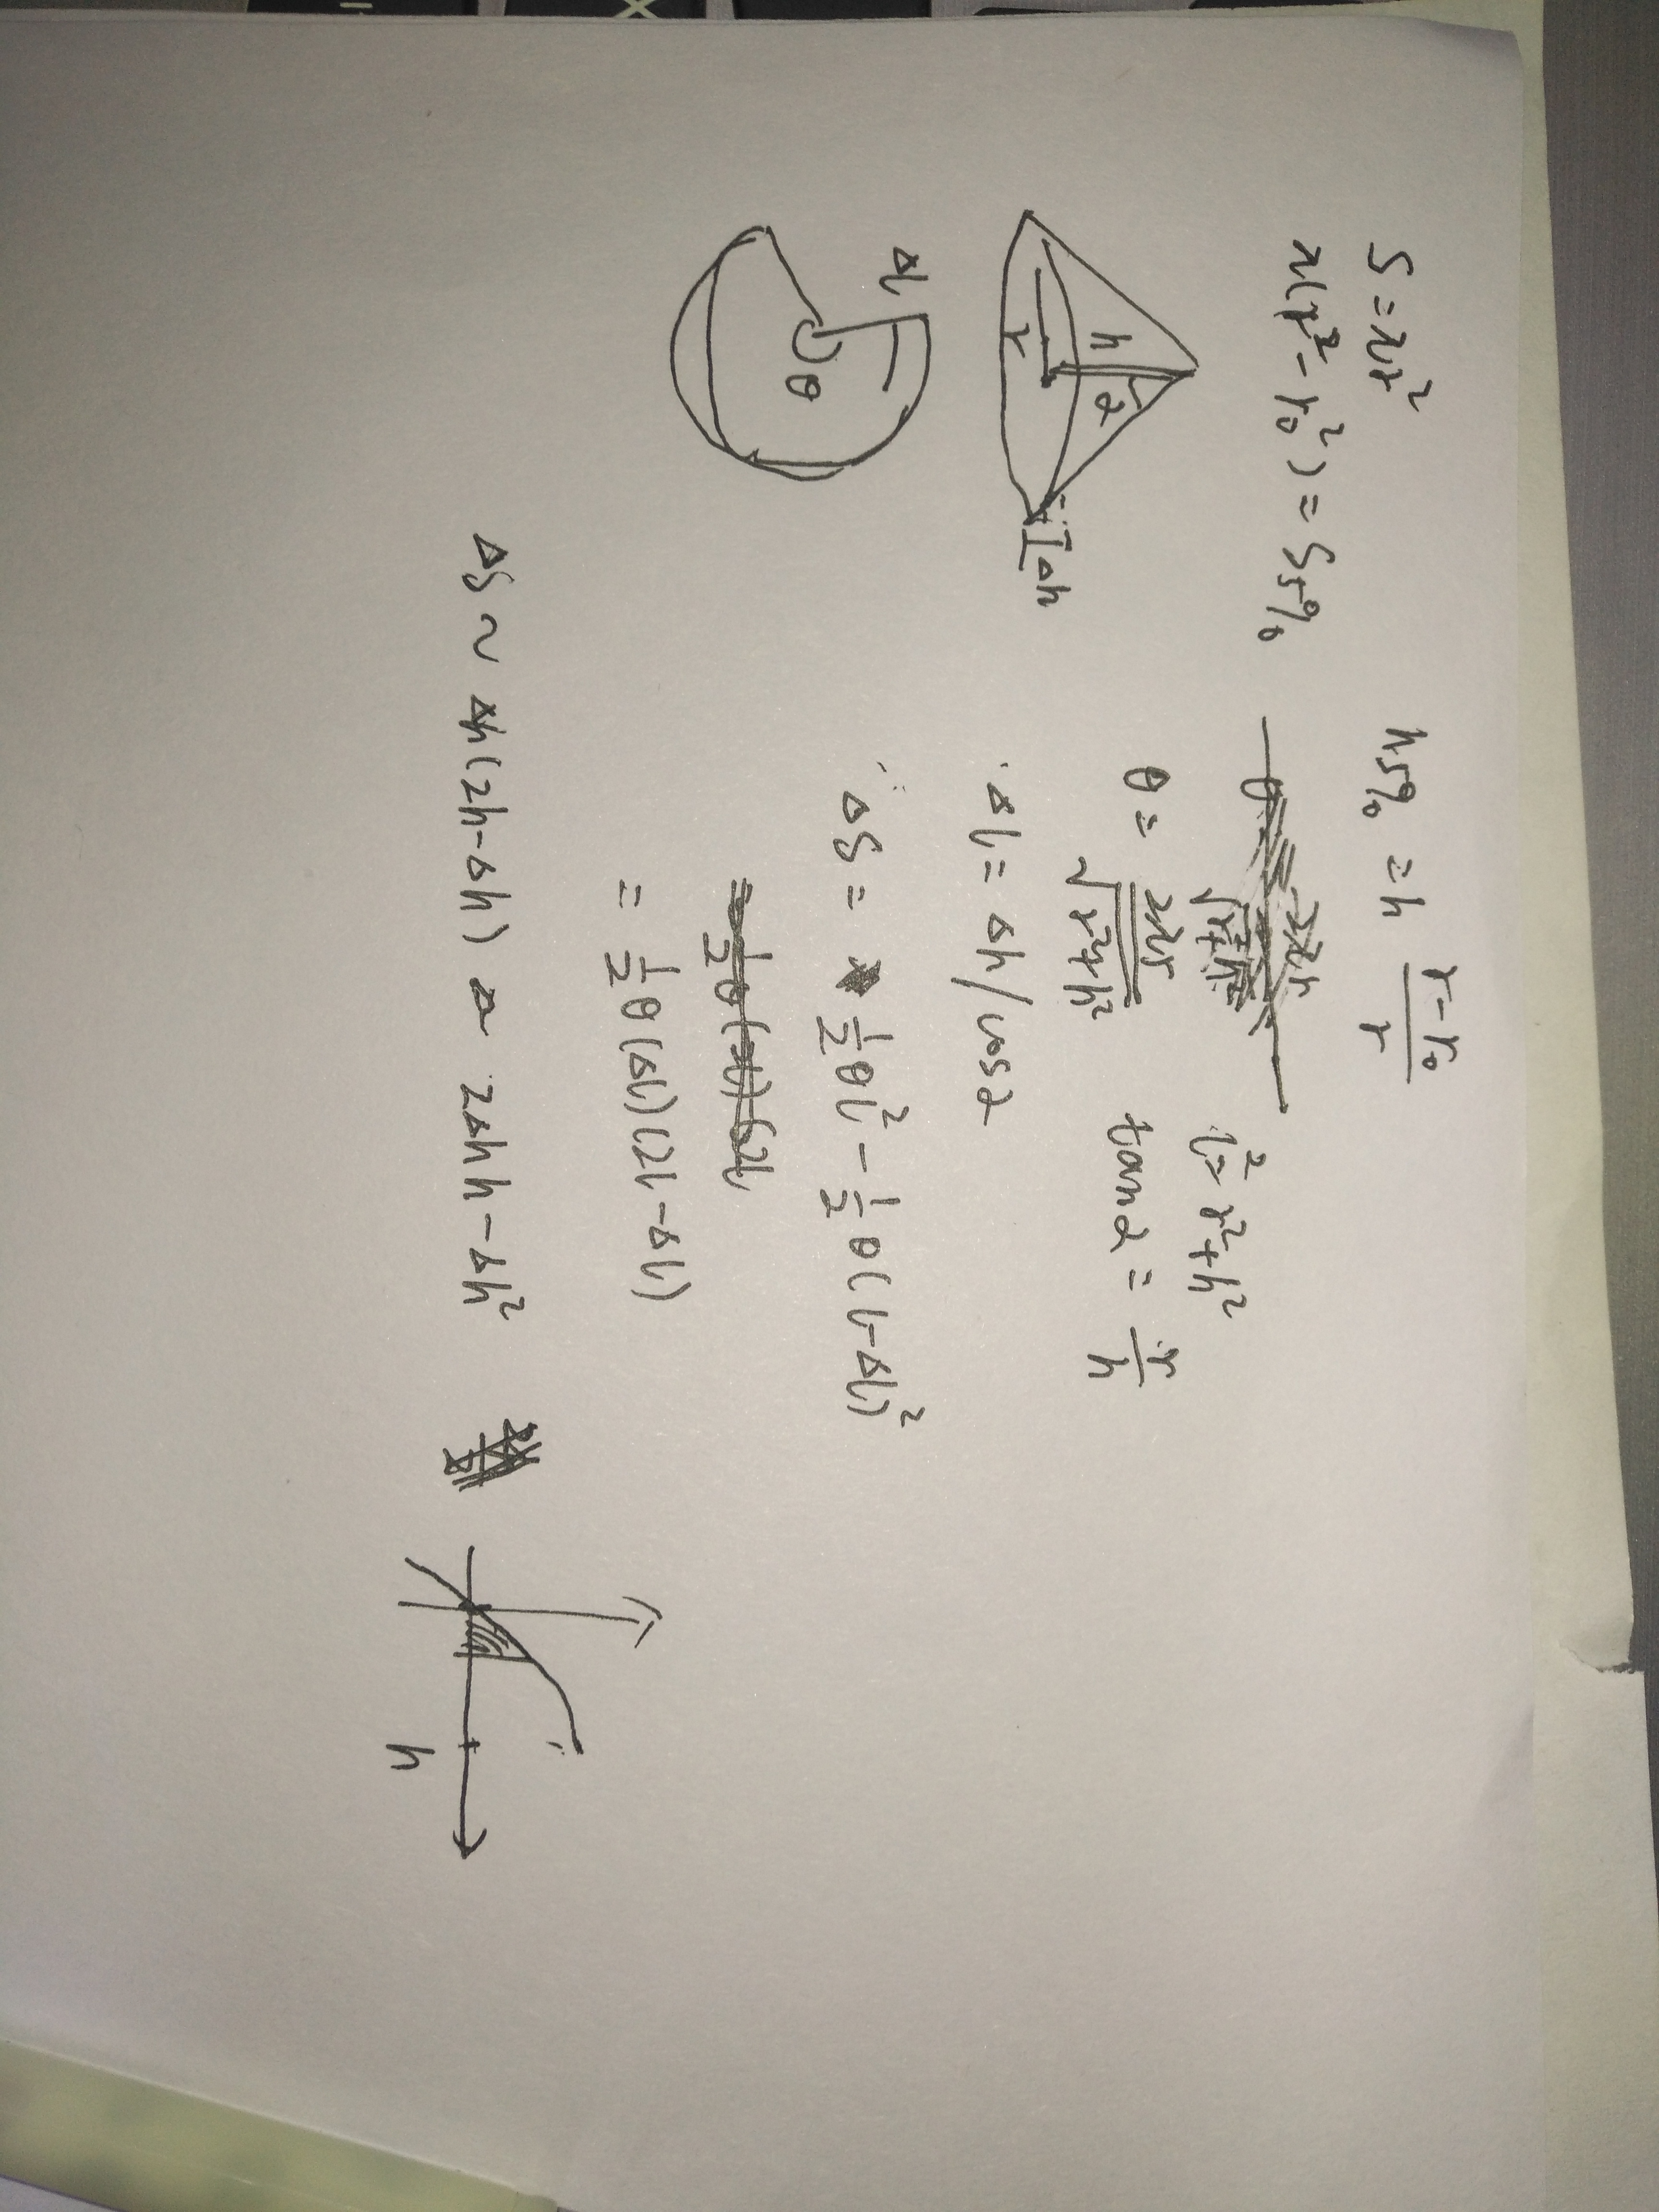 S = πr²
π(r² - r₀²) = S₅%
h₅% = h (r - r₀)/r
h
α
r
Δh
l² = r² + h²
θ = 2πr/√(r² + h²)
tanα = r/h
Δl = Δh/cosα
Δl
θ
∴ ΔS = ½θl² - ½θ(l - Δl)²
= ½θ(Δl)(2l - Δl)
ΔS ~ Δh(2h - Δh) ~ 2Δhh - Δh²
h